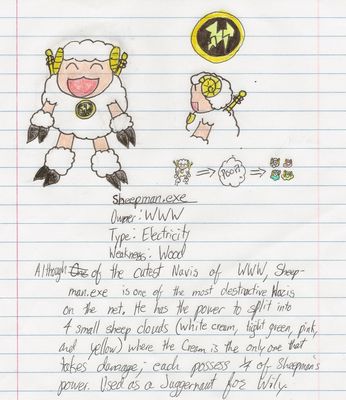 POOF!
Sheepman.exe
Owner: WWW
Type: Electricity
Weakness: Wood
Although One of the cutest Navis of WWW, Sheep-
man.exe is one of the most destructive Navis
on the net. He has the power to split into
4 small sheep clouds (white cream, light green, pink,
and yellow) where the Cream is the only one that
takes damage; each possess ¼ of Sheepman's
power. Used as a Juggernaut for Wily.